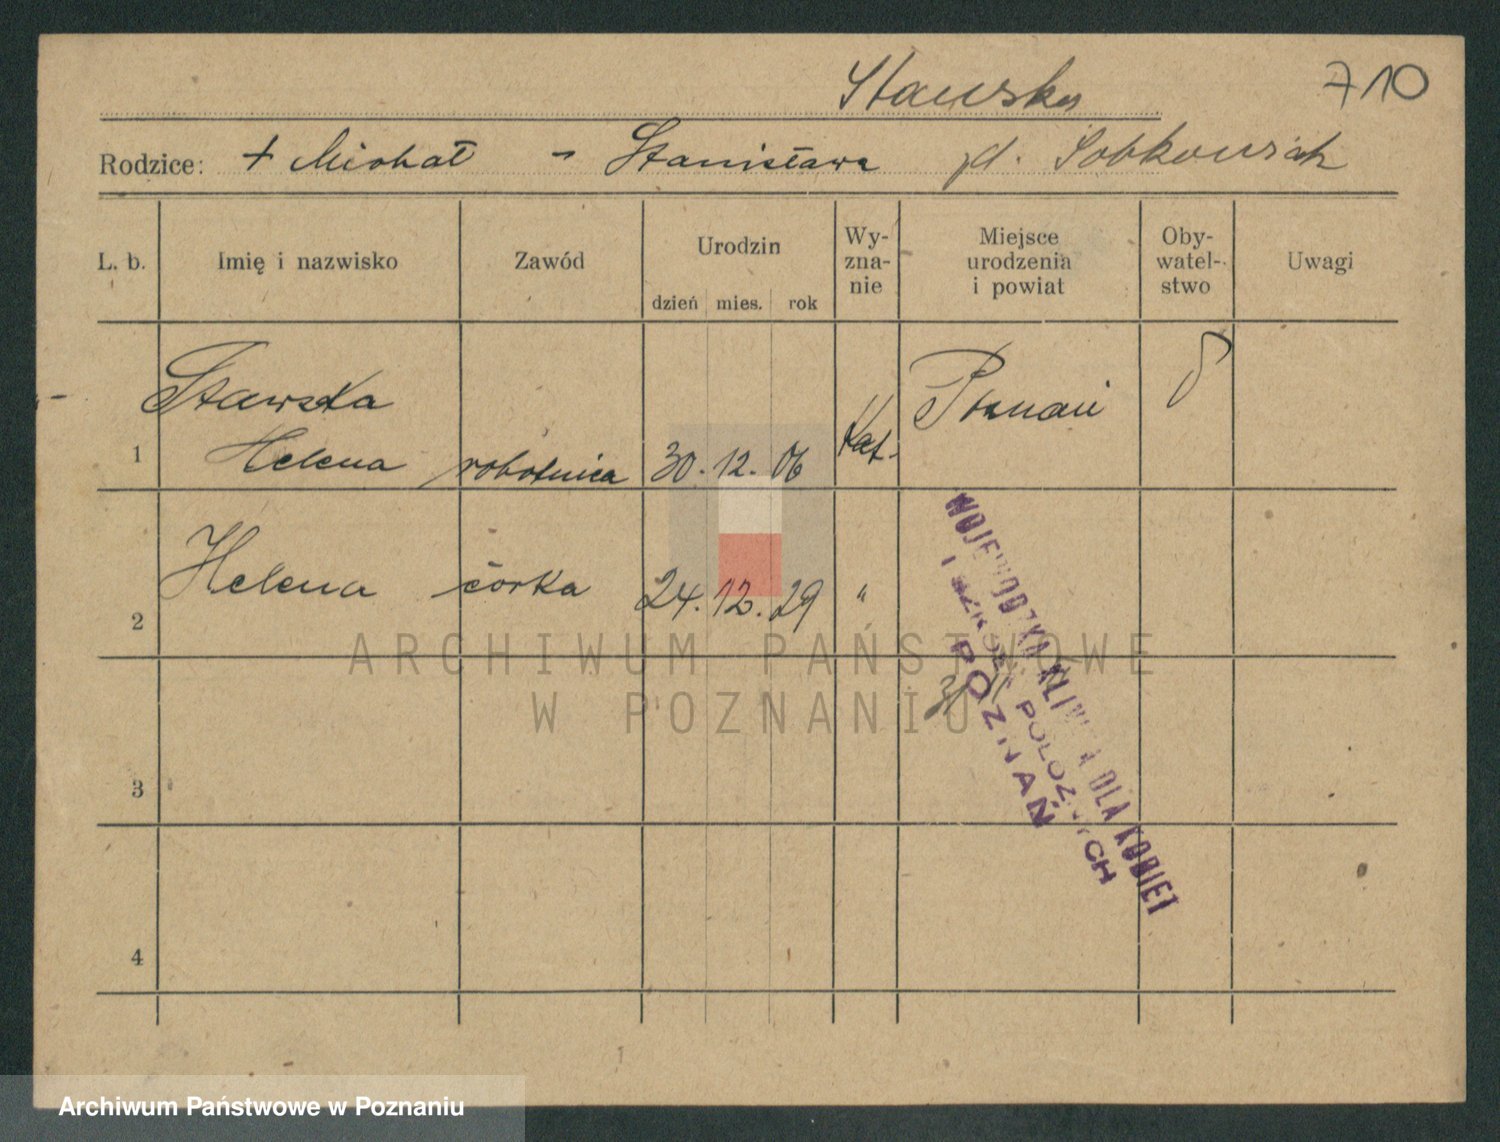 Stawska
710
Rodzice: + Michał - Stanisława zd. Sobkowiak
L. b. Imię i nazwisko Zawód Urodzin dzień mies. rok Wy-zna-nie Miejsce urodzenia i powiat Oby-watel-stwo Uwagi
Stawska
1 Helena robotnica 30. 12. 06 Kat. Poznań
2 Helena córka 24. 12. 29 "
3
4
WOJEWÓDZKA KLINIKA DLA KOBIET
I SZKOŁA POŁOŻNYCH
POZNAŃ
ARCHIWUM PAŃSTWOWE
W POZNANIU
Archiwum Państwowe w Poznaniu